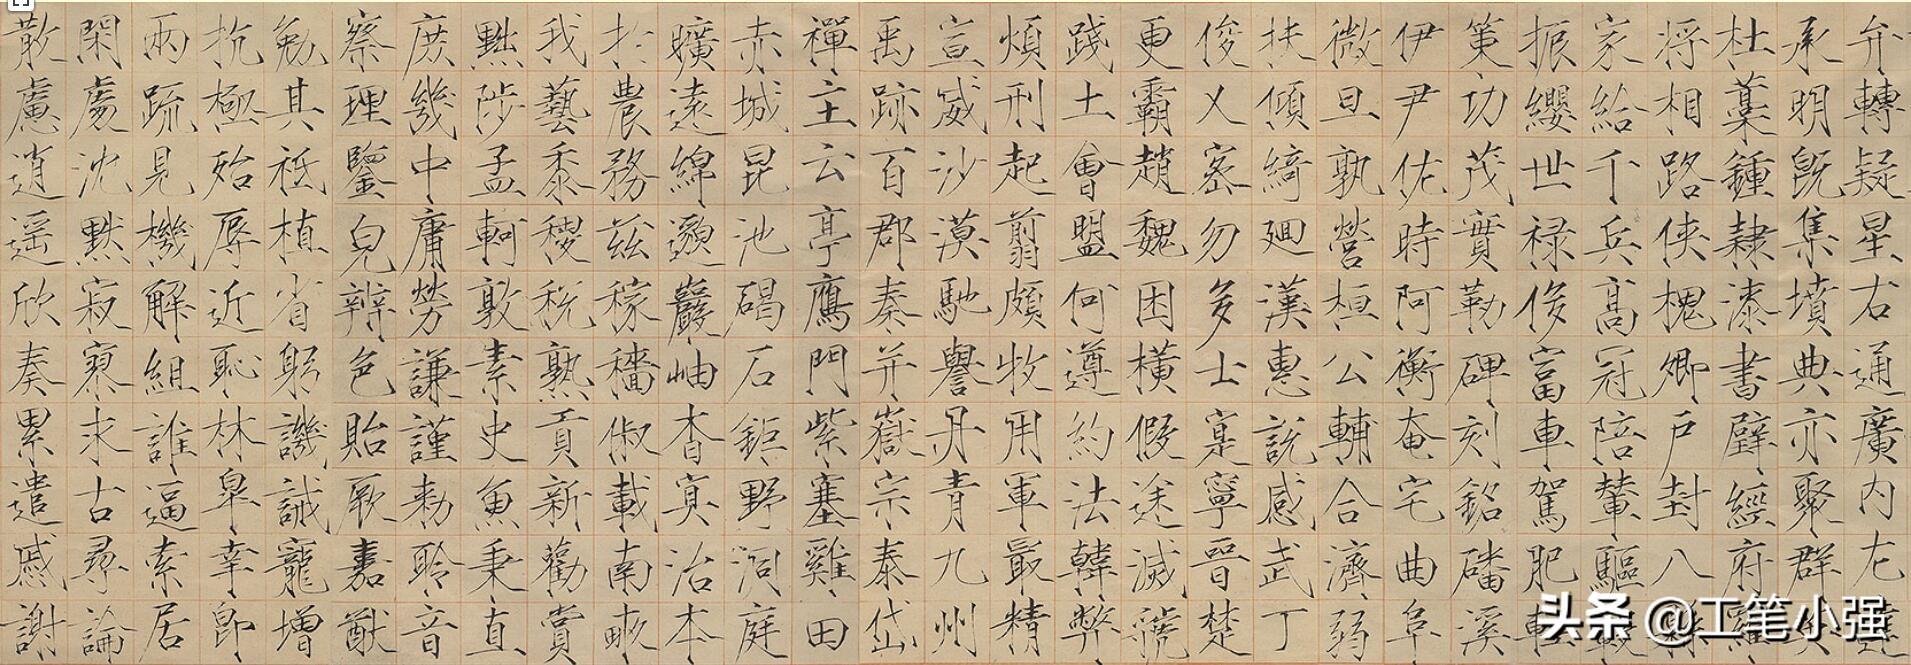 弁轉疑星右通廣内左達
承明既集墳典亦聚群英
杜藁鍾隸漆書壁經府羅
将相路俠槐卿戶封八縣
家給千兵高冠陪輦驅轂
振纓世禄侈富車駕肥輕
策功茂實勒碑刻銘磻溪
伊尹佐時阿衡奄宅曲阜
微旦孰營桓公輔合濟弱
扶傾綺廻漢惠說感武丁
俊乂密勿多士寔寧晉楚
更霸趙魏困橫假途滅虢
踐土會盟何遵約法韓弊
煩刑起翦頗牧用軍最精
宣威沙漠馳譽丹青九州
禹跡百郡秦并嶽宗泰岱
禪主云亭鴈門紫塞雞田
赤城昆池碣石鉅野洞庭
曠遠綿邈巖岫杳冥治本
於農務茲稼穡俶載南畝
我藝黍稷稅熟貢新勸賞
黜陟孟軻敦素史魚秉直
庶幾中庸勞謙謹勑聆音
察理鑒皃辨色貽厥嘉猷
勉其祗植省躬譏誡寵增
抗極殆辱近恥林皋幸即
兩疏見機解組誰逼索居
閑處沈默寂寥求古尋論
散慮逍遥欣奏累遣慼謝
头条 @工笔小强